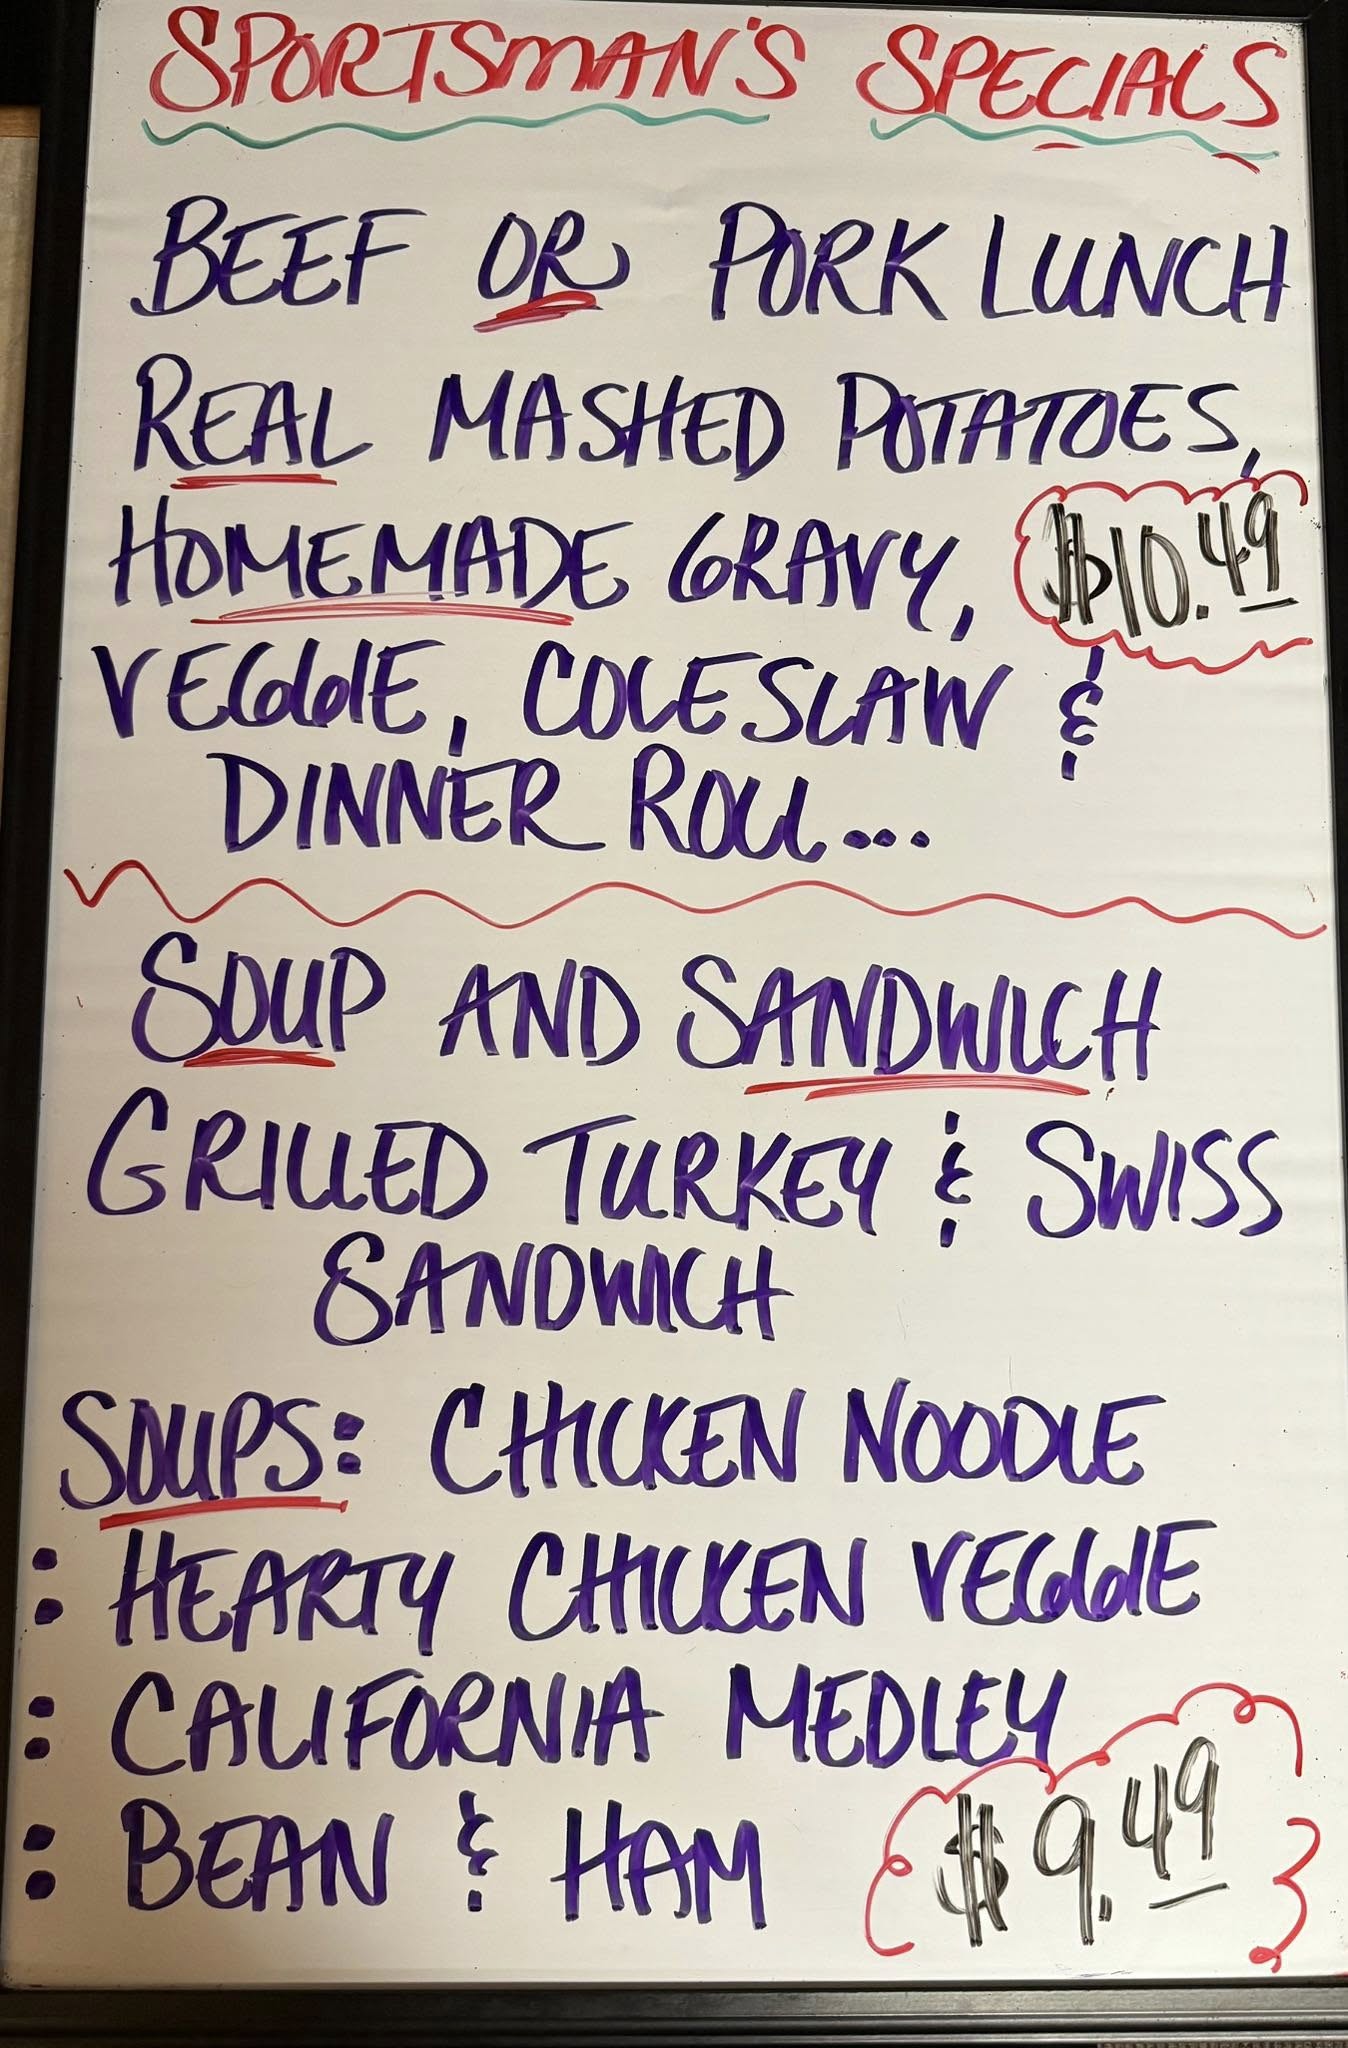 SPORTSMAN'S SPECIALS
BEEF OR PORK LUNCH
REAL MASHED POTATOES,
HOMEMADE GRAVY, $10.49
VEGGIE, COLESLAW &
DINNER ROLL...
SOUP AND SANDWICH
GRILLED TURKEY & SWISS
SANDWICH
SOUPS: CHICKEN NOODLE
: HEARTY CHICKEN VEGGIE
: CALIFORNIA MEDLEY
: BEAN & HAM $9.49